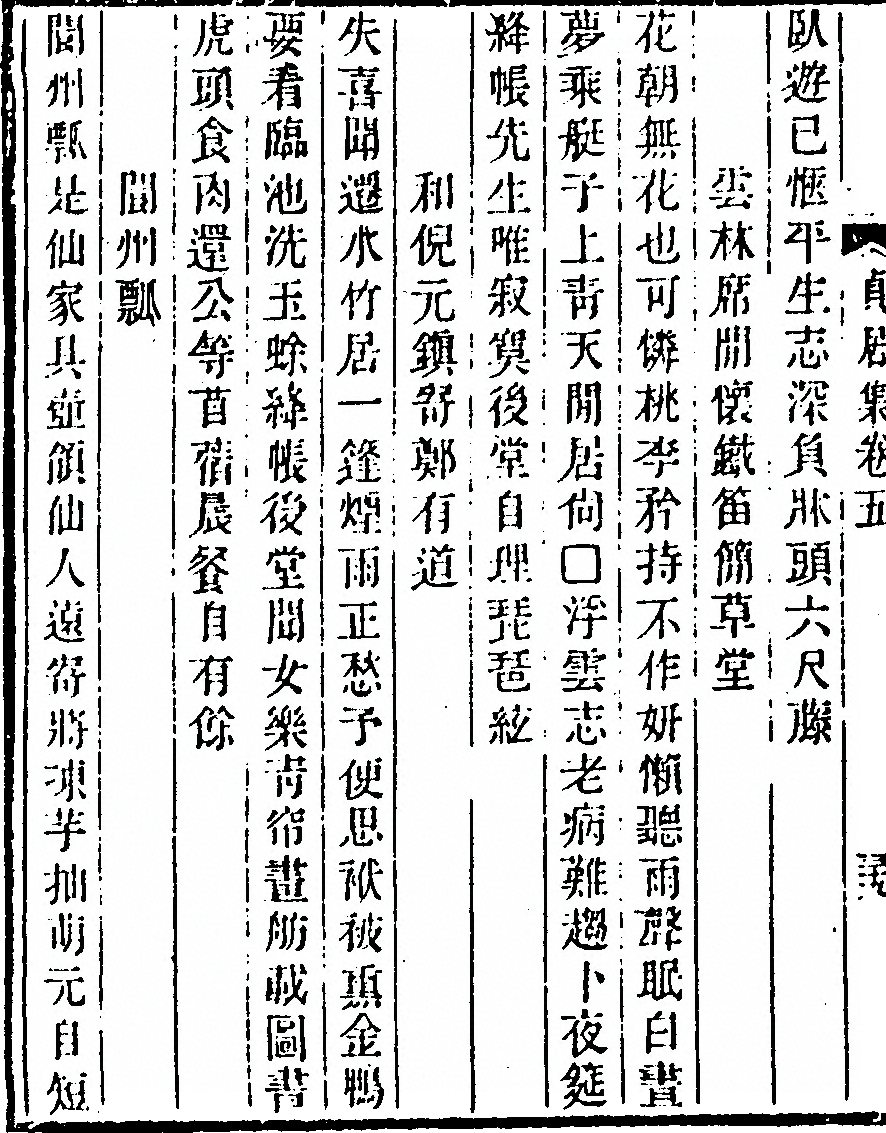 貞居集卷五
臥遊已愜平生志深負牀頭六尺藤
雲林席間懷鐵笛簡草堂
花朝無花也可憐桃李矜持不作妍懶聽雨聲眠白晝
夢乘艇子上青天閒居尚□浮雲志老病難趨卜夜筵
絳帳先生唯寂寞後堂自理琵琶絃
和倪元鎮寄鄭有道
失喜聞還水竹居一篷煙雨正愁予便思袱被熏金鴨
要看臨池洗玉蜍絳帳後堂聞女樂青帘畫舫載圖書
虎頭食肉還公等苜蓿晨餐自有餘
閬州瓢
閬州瓢是仙家具壺領仙人遠寄將凍芋抽萌元自短